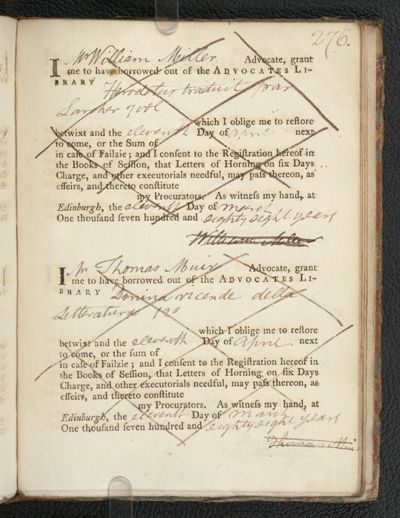 276.
I Mr William Miller Advocate, grant
me to have borrowed out of the ADVOCATES LI-
BRARY traduit par
Larcher 7 vol
which I oblige me to restore
betwixt and the eleventh Day of april next
to come, or the Sum of
in case of Failzie; and I consent to the Registration hereof in
the Books of Session, that Letters of Horning on six Days
Charge, and other executorials needful, may pass thereon, as
effeirs, and thereto constitute
my Procurators. As witness my hand, at
Edinburgh, the eleventh Day of march
One thousand seven hundred and eighty eight years
William Miller
I Mr Thomas Muir Advocate, grant
me to have borrowed out of the ADVOCATES LI-
BRARY Denina vicende della
Letteratura
which I oblige me to restore
betwixt and the eleventh Day of april next
to come, or the sum of
in case of Failzie; and I consent to the Registration hereof in
the Books of Session, that Letters of Horning on six Days
Charge, and other executorials needful, may pass thereon, as
effeirs, and thereto constitute
my Procurators. As witness my hand, at
Edinburgh, the eleventh Day of march
One thousand seven hundred and eighty eight years
Thomas Muir